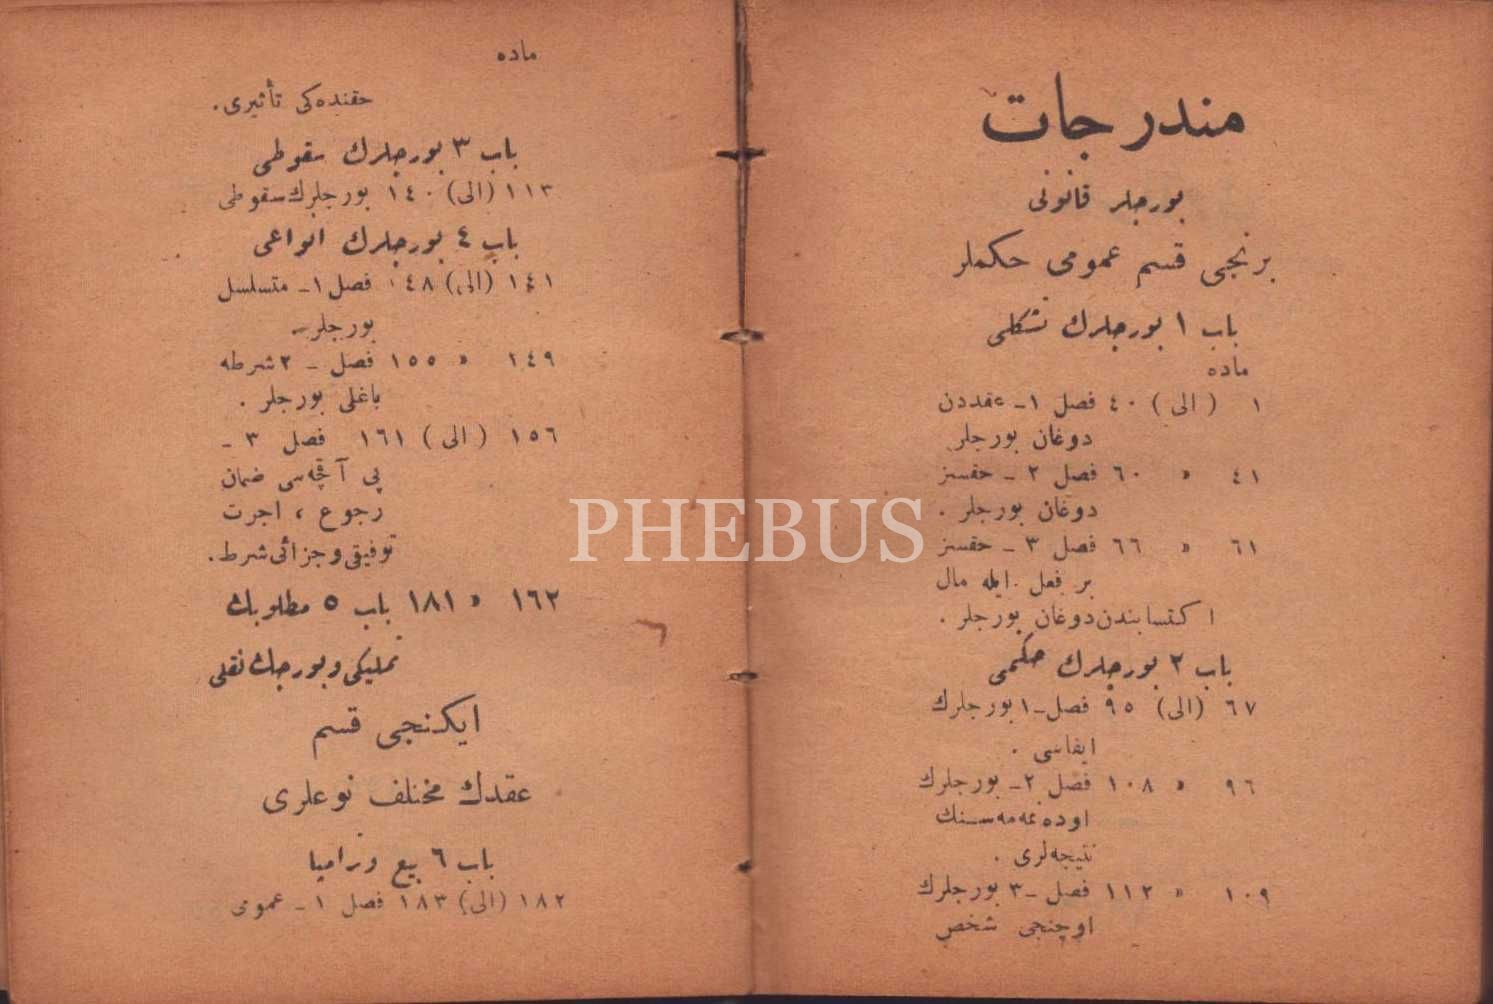 مندرجات
بورجلر قانونی
برنجی قسم عمومی حکملر
باب ١ بورجلرك تشکلی
ماده
١ (الی) ٤٠ فصل ١ـ عقددن
دوغان بورجلر
٤١ « ٦٠ فصل ٢ ـ حقسز
دوغان بورجلر .
٦١ « ٦٦ فصل ٣ ـ حقسز
بر فعل ایله مال
اکتسابندن دوغان بورجلر .
باب ٢ بورجلرك حکمی
٦٧ (الی) ٩٥ فصل ـ١ بورجلرك
ایفاسی .
٩٦ « ١٠٨ فصل ٢ـ بورجلرك
اوده نمه مه سنك
نتیجه لری .
١٠٩ « ١١٢ فصل ـ٣ بورجلرك
اوچنجی شخص
ماده
حقنده کی تأثیری .
باب ٣ بورجلرك سقوطی
١١٣ (الی) ١٤٠ بورجلرك سقوطی
باب ٤ بورجلرك انواعی
١٤١ (الی) ١٤٨ فصل ١ـ متسلسل
بورجلر
١٤٩ « ١٥٥ فصل ـ ٢ شرطه
باغلی بورجلر .
١٥٦ (الی) ١٦١ فصل ٣ ـ
پی آقچه سی ضمان
رجوع ، اجرت
توقیفی و جزائی شرط .
١٦٢ « ١٨١ باب ٥ مطلوبك
تملیکی و بورجك نقلی
ایکنجی قسم
عقدك مختلف نوعلری
باب ٦ بیع و ترامپا
١٨٢ (الی) ١٨٣ فصل ١ ـ عمومی
PHEBUS